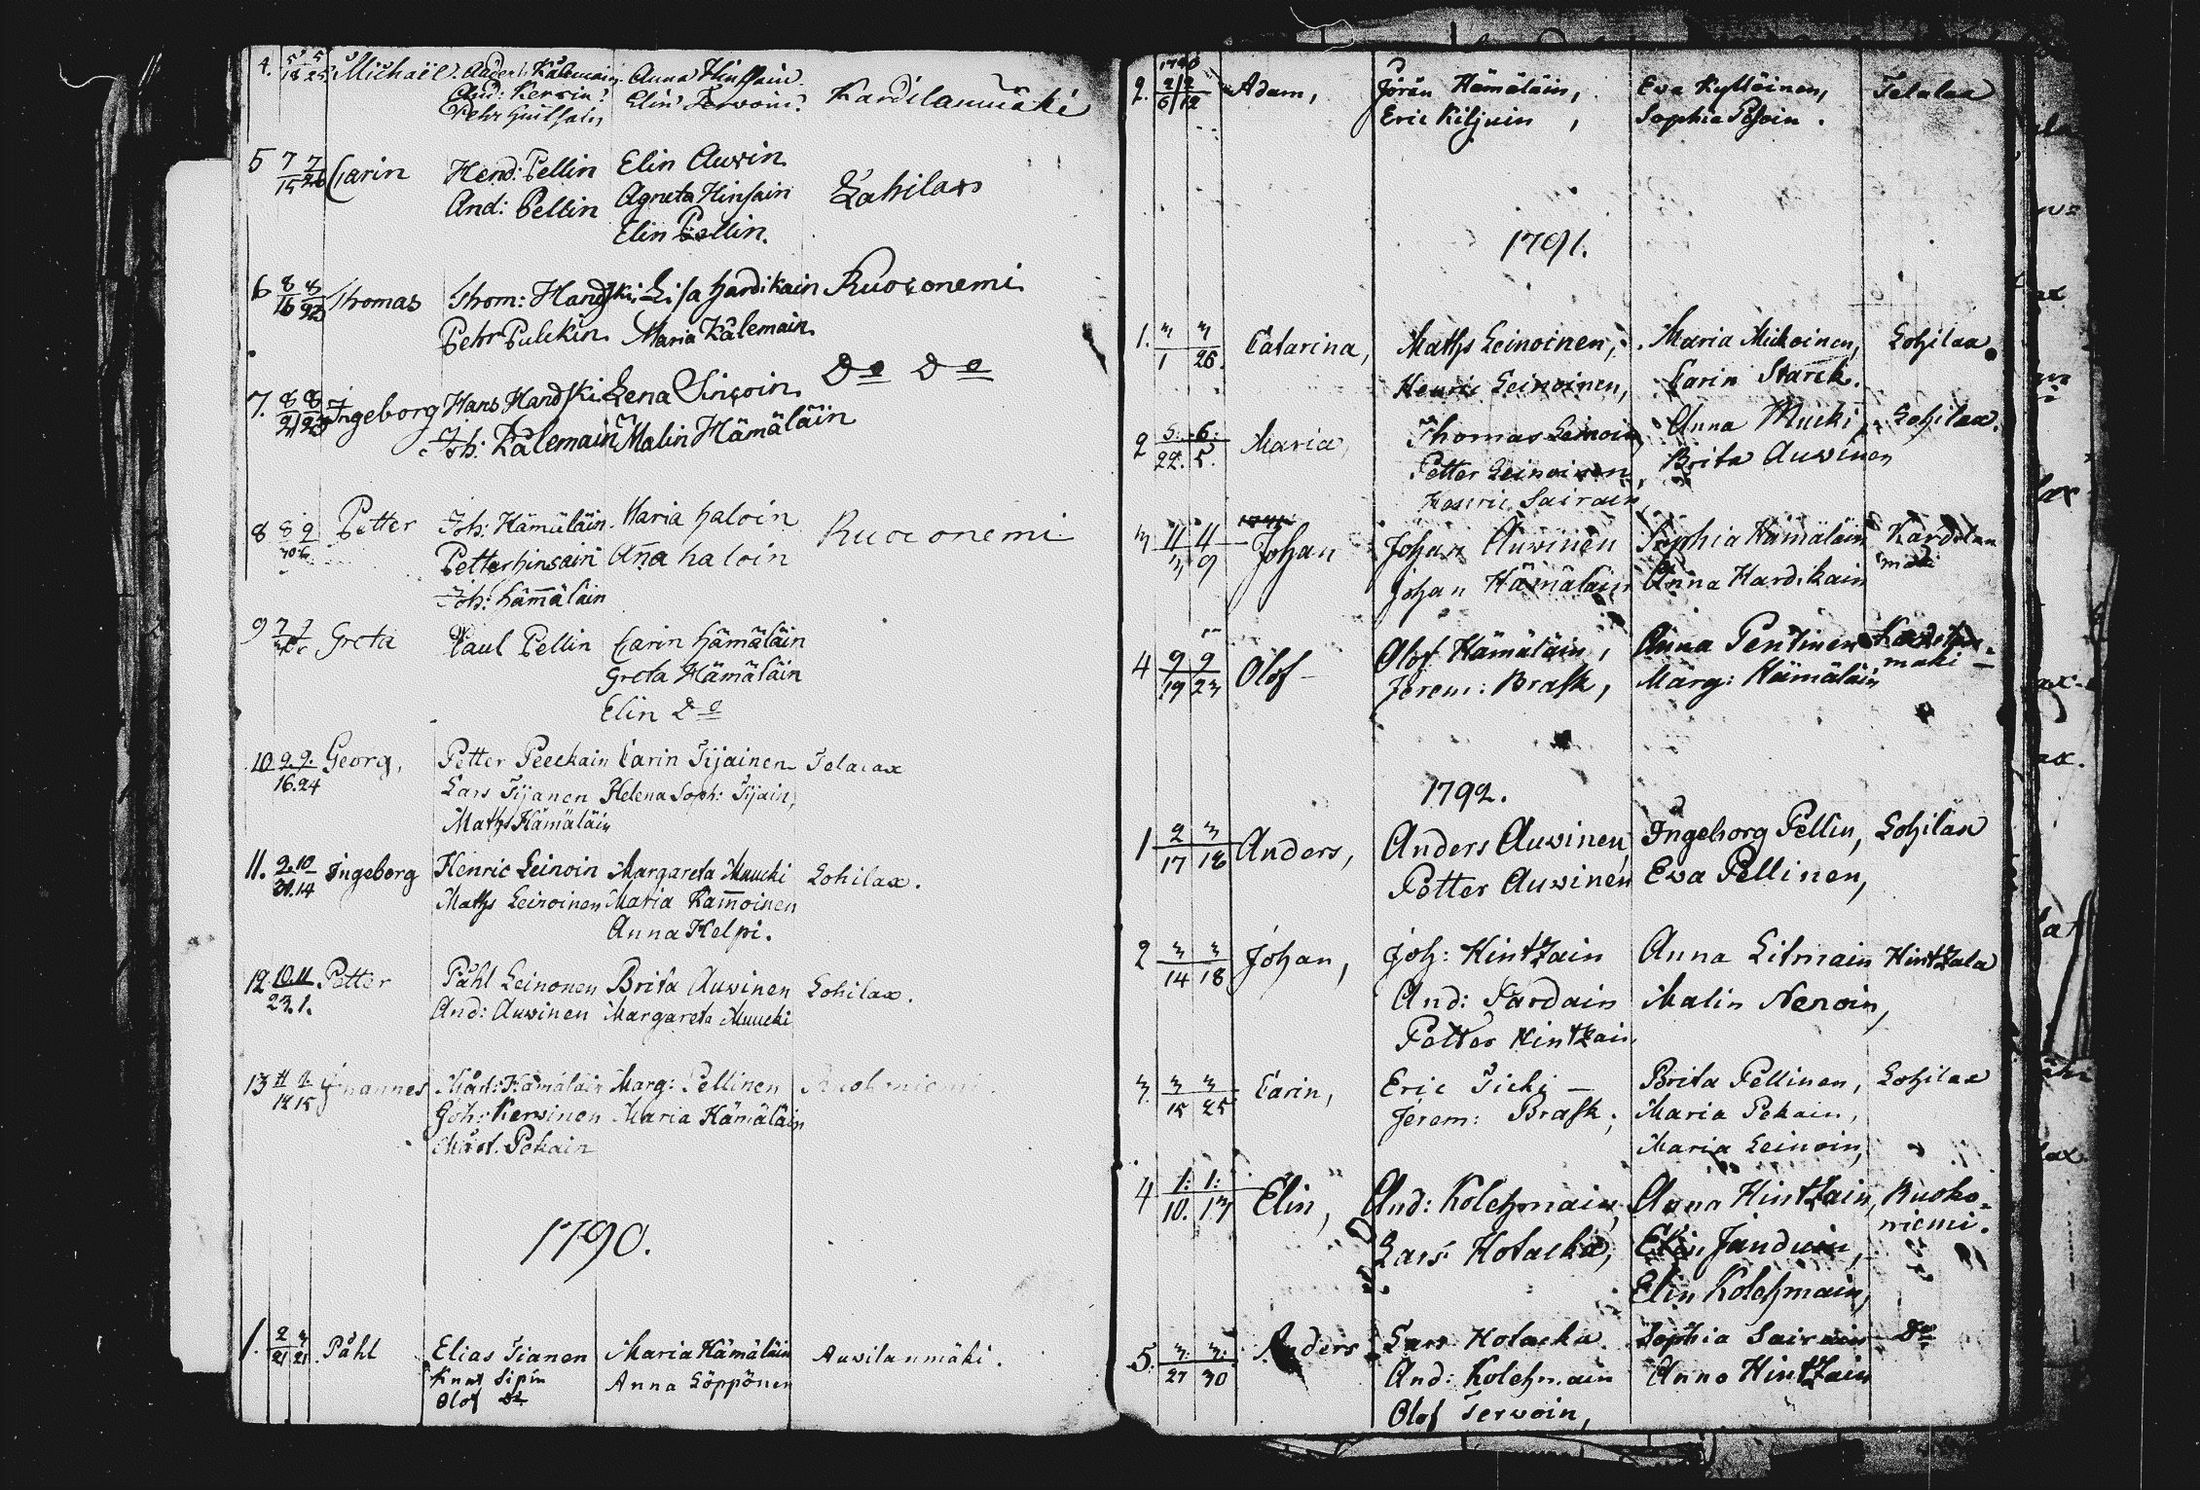 4. 5 5 Michaël. Anders Kålemain. Anna Hinssain
18 25 And: Kerwin Elin Terwoin Kardilanmäki
Pehr Huilsain
5 7 7 Carin Hend: Pellin Elin Auvin
15 26 And: Pellin Agneta Hinsain Lahilax
Elin Pellin.
6 8 8 Thomas Thom: Handski Lisa Hardikain Ruoconemi
16 23 Pehr Pulckin Maria Kålemain
7. 8 8 Ingeborg Hans Handski Lena Sinçoin Do Do
21 23 Joh: Kålemain Malin Hämäläin
8 8 9 Petter Joh: Hämäläin. Maria Haloin Ruoconemi
30 6 Petter Hinsain Ana Haloin
Joh: Hämäläin
9 7 7 Greta Paul Pellin Carin Hämäläin
Greta Hämäläin
Elin Do
10 9. 9. Georg, Petter Peeckain Carin Tijainen Telalax
16. 24 Lars Tijanen Helena Soph: Tijain,
Maths Hämäläin
11. 9. 10 Ingeborg Henric Leinoin Margareta Muucki Lohilax.
31. 14 Maths Leinoinen Maria Kamoinen
Anna Helpi.
12 10. 11 Petter Påhl Leinonen Brita Auwinen Lohilax.
23. 1. And: Auwinen Margareta Muucki
13 11 11 Johannes Mårt: Hämäläin Marg: Pellinen Ruokoniemi
14 15 Joh: Kerwinen Maria Hämäläin
Mårt. Pekain
1790.
1. 2 3 Påhl Elias Tianen Maria Hämäläin Auvilanmäki.
21 21 Knut Sipin Anna Löppönen
Olof Do
1790
2. 2 2 Adam, Jörän Hämäläin, Eva Kylläinen, Telalax
6 12 Eric Kiljuin, Sophia Pesoin.
1791.
1. 3 3 Catarina, Maths Leinoinen, Maria Mickoinen, Lohilax
1 26. Henric Leinoinen, Carin Starck.
2 5: 6: Maria, Thomas Leinoin, Anna Mucki, Lohilax.
22. 5. Petter Leinoinen, Brita Auwinen
Henric Sairain
3 11 11 Johan Johan Auwinen Sophia Hämäläin Kardilan
3 9 Johan Hämäläin Anna Hardikain mäki
4 9 9 Olof Olof Hämäläin, Anna Pentinen Kardilan-
19 23 Jerem: Brask, Marg: Hämäläin mäki
1792.
1 2 3 Anders, Anders Auwinen, Ingeborg Pellin, Lohilax
17 18 Petter Auwinen Ewa Pellinen,
2 3 3 Johan, Joh: Hintzain Anna Litmain Hintzala
14 18 And: Pardain Malin Nenoin,
Petter Hintzain,
3. 3 3 Carin, Eric Ticki — Brita Pellinen, Lohilax
15 25 Jerem: Brask, Maria Pekain,
Maria Leinoin,
4 1: 1: Elin, And: Kolehmain, Anna Hintzain, Ruoko-
10. 13 Lars Kotacka, Elin Janduin, niemi.
Elin Kolehmain,
5. 3: 3: Anders Lars Kotacka. Sophia Sairain Do
27 30 And: Kolehmain Anna Hintzain
Olof Terwoin,